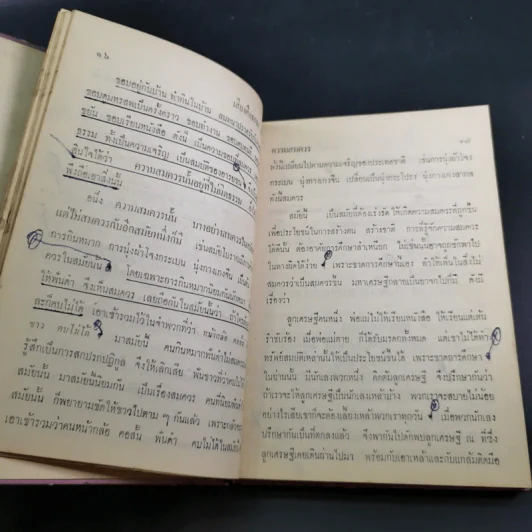 ๑๖
ชอบอยู่กับบ้าน ทำกินในบ้าน
ชอบคนทรงสพเป็นครั้งคราว ชอบอ้างงาน
ขยัน ชอบเรียนหนังสือ ดังนี้ เป็นความ
ธรรม ทั้งเป็นความเจริญ เป็นสมบัติของ
ตื่นใจได้ว่า ความสมควรนั้นอยู่ที่ไม่ผิดธรรม
พึงถือเอาสิ่งนั้น
อนึ่ง ความสมควรนั้น บางอย่างสมควรใน
แต่ไม่สมควรกับอีกสมัยหนึ่งก็มี เช่นสมัยโบราณ
การกินหมาก การนุ่งผ้าโจงกระเบน นุ่งกางเกงจีน
ควรในสมัยนั้น โดยเฉพาะการกินหมากนิยมกัน
ให้ฟันดำ จึงเห็นสมควร เลยถือกันในสมัยนั้นว่า
คบไม่ได้ เอาเข้ารวมไว้ในจำพวกที่ว่า หน้ากลัก
ขาว คบไม่ได้ มาสมัยนี้ คนกินหมากฟันดำไม่สมควร
รู้สึกเป็นการสกปรกปฏิกูล จึงให้เลิกเสีย ฟันขาวที่
สมัยนั้น มาสมัยนี้นิยมกัน เป็นเรื่องสมควร คนที่
สมัยนั้น ก็พยายามขัดให้ขาวไปตาม ๆ กันแล้ว เพราะ
เอาเข้ารวมว่าคนหน้ากล้อ คอสั้น ฟันดำ คบไม่ได้ใน
ความสมควร
๑๗
ทั้งนี้เปลี่ยนไปตามความเจริญของประเทศชาติ เช่นการนุ่งผ้าโจง
กระเบน นุ่งกางเกงจีน เปลี่ยนเป็นนุ่งกระโปรง นุ่งกางเกงสากล
ดังนี้สมควร
สมัยนี้ เป็นสมัยที่ต้องเร่งรัด ให้เกิดความสมควรที่ถูกขึ้น
เพื่อประโยชน์ในการสร้างตน สร้างชาติ การที่รู้จักความสมควร
ได้ดีนั้น ต้องอาศัยการศึกษาสำเหนียก ไม่เช่นนั้นอาจถูกชักพาไป
ในทางผิดได้ง่าย เพราะขาดการศึกษานี้เอง ทำให้เห็นในสิ่งที่ไม่
สมควรว่าเป็นสมควรขึ้น มหาเศรษฐีกลายเป็นยาจกไปก็มี ดังมี
เรื่องว่า
ลูกเศรษฐีคนหนึ่ง พ่อแม่ไม่ให้เรียนหนังสือ ให้เรียนแต่เต้น
รำขับร้อง เมื่อพ่อแม่ตาย ก็ได้รับมรดกทั้งหมด แต่เขาไม่ได้ทำ
ทรัพย์สมบัติเหล่านั้นให้เป็นประโยชน์ขึ้นได้ เพราะขาดการศึกษา
ในย่านนั้น มีนักเลงพวกหนึ่ง คิดต้มลูกเศรษฐี จึงปรึกษากันว่า
ถ้าเราจะให้ลูกเศรษฐีเป็นนักเลงเหล้าบ้าง พวกเราจะสบายไม่น้อย
อย่างไรเสียเขาก็จะต้องเลี้ยงเหล้าพวกเราทุกวัน เมื่อพวกนักเลง
ปรึกษากันเป็นที่ตกลงแล้ว จึงพากันไปดักพบลูกเศรษฐี ณ ที่ซึ่ง
ลูกเศรษฐีเคยเดินผ่านไปมา พร้อมกับเอาเหล้าและกับแกล้มติดมือ